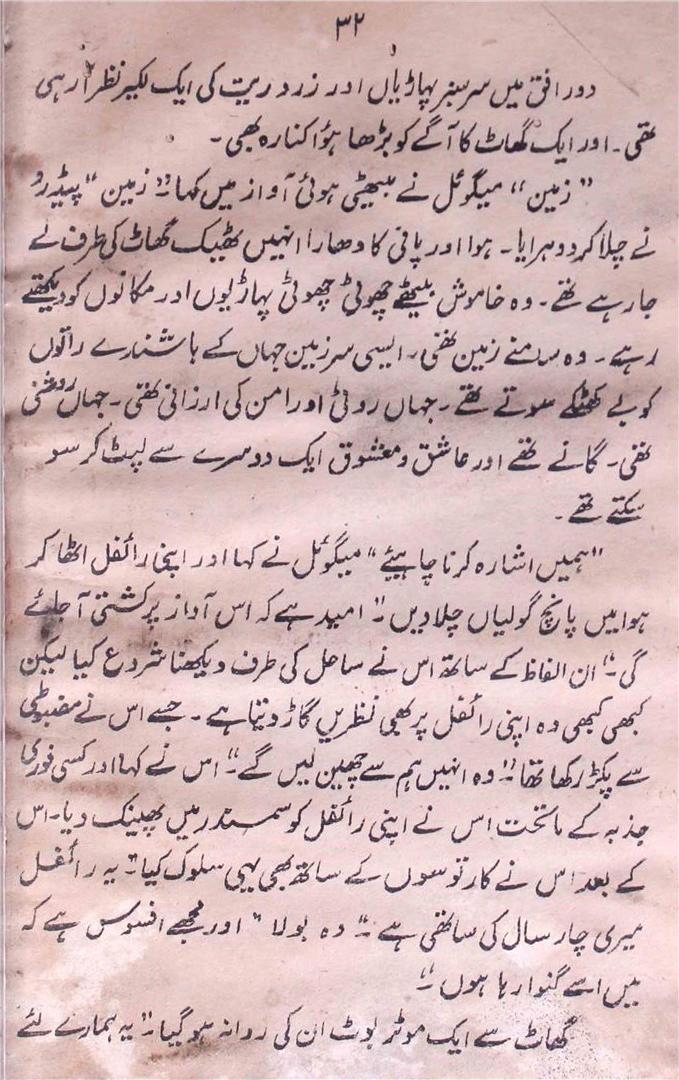 ۳۲
دور افق میں سرسبز پہاڑیاں اور زرد ریت کی ایک لکیر نظر آ رہی
تھی۔ اور ایک گھاٹ کا آگے کو بڑھا ہؤا کنارہ بھی۔
”زمین“ میگوئل نے بیٹھی ہوئی آواز میں کہا۔” زمین“ پیڈرو
نے چلا کر دوہرایا۔ ہوا اور پانی کا دھارا انہیں ٹھیک گھاٹ کی طرف لے
جا رہے تھے۔ وہ خاموش بیٹھے چھوٹی چھوٹی پہاڑیوں اور مکانوں کو دیکھتے
رہے۔ وہ سامنے زمین تھی۔ ایسی سرزمین جہاں کے باشندے راتوں
کو بے کھٹکے سوتے تھے۔ جہاں روٹی اور امن کی ارزانی تھی۔ جہاں روشنی
تھی۔ گانے تھے اور عاشق و معشوق ایک دوسرے سے لپٹ کر سو
سکتے تھے۔
”ہمیں اشارہ کرنا چاہیئے“ میگوئل نے کہا اور اپنی رائفل اٹھا کر
ہوا میں پانچ گولیاں چلا دیں۔” امید ہے کہ اس آواز پر کشتی آ جائے
گی۔“ ان الفاظ کے ساتھ اس نے ساحل کی طرف دیکھنا شروع کیا لیکن
کبھی کبھی وہ اپنی رائفل پر بھی نظریں گاڑ دیتا ہے۔ جسے اس نے مضبوطی
سے پکڑ رکھا تھا۔” وہ انہیں ہم سے چھین لیں گے۔“ اس نے کہا اور کسی فوری
جذبہ کے ماتحت اس نے اپنی رائفل کو سمندر میں پھینک دیا۔ اس
کے بعد اس نے کارتوسوں کے ساتھ بھی یہی سلوک کیا۔” یہ رائفل
میری چار سال کی ساتھی ہے۔“ وہ بولا ” اور مجھے افسوس ہے کہ
میں اسے گنوا رہا ہوں۔“
گھاٹ سے ایک موٹر بوٹ ان کی روانہ ہو گیا۔” یہ ہمارے لئے